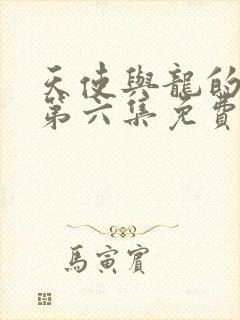 天使與龍的
第六集免費
馬寅賓